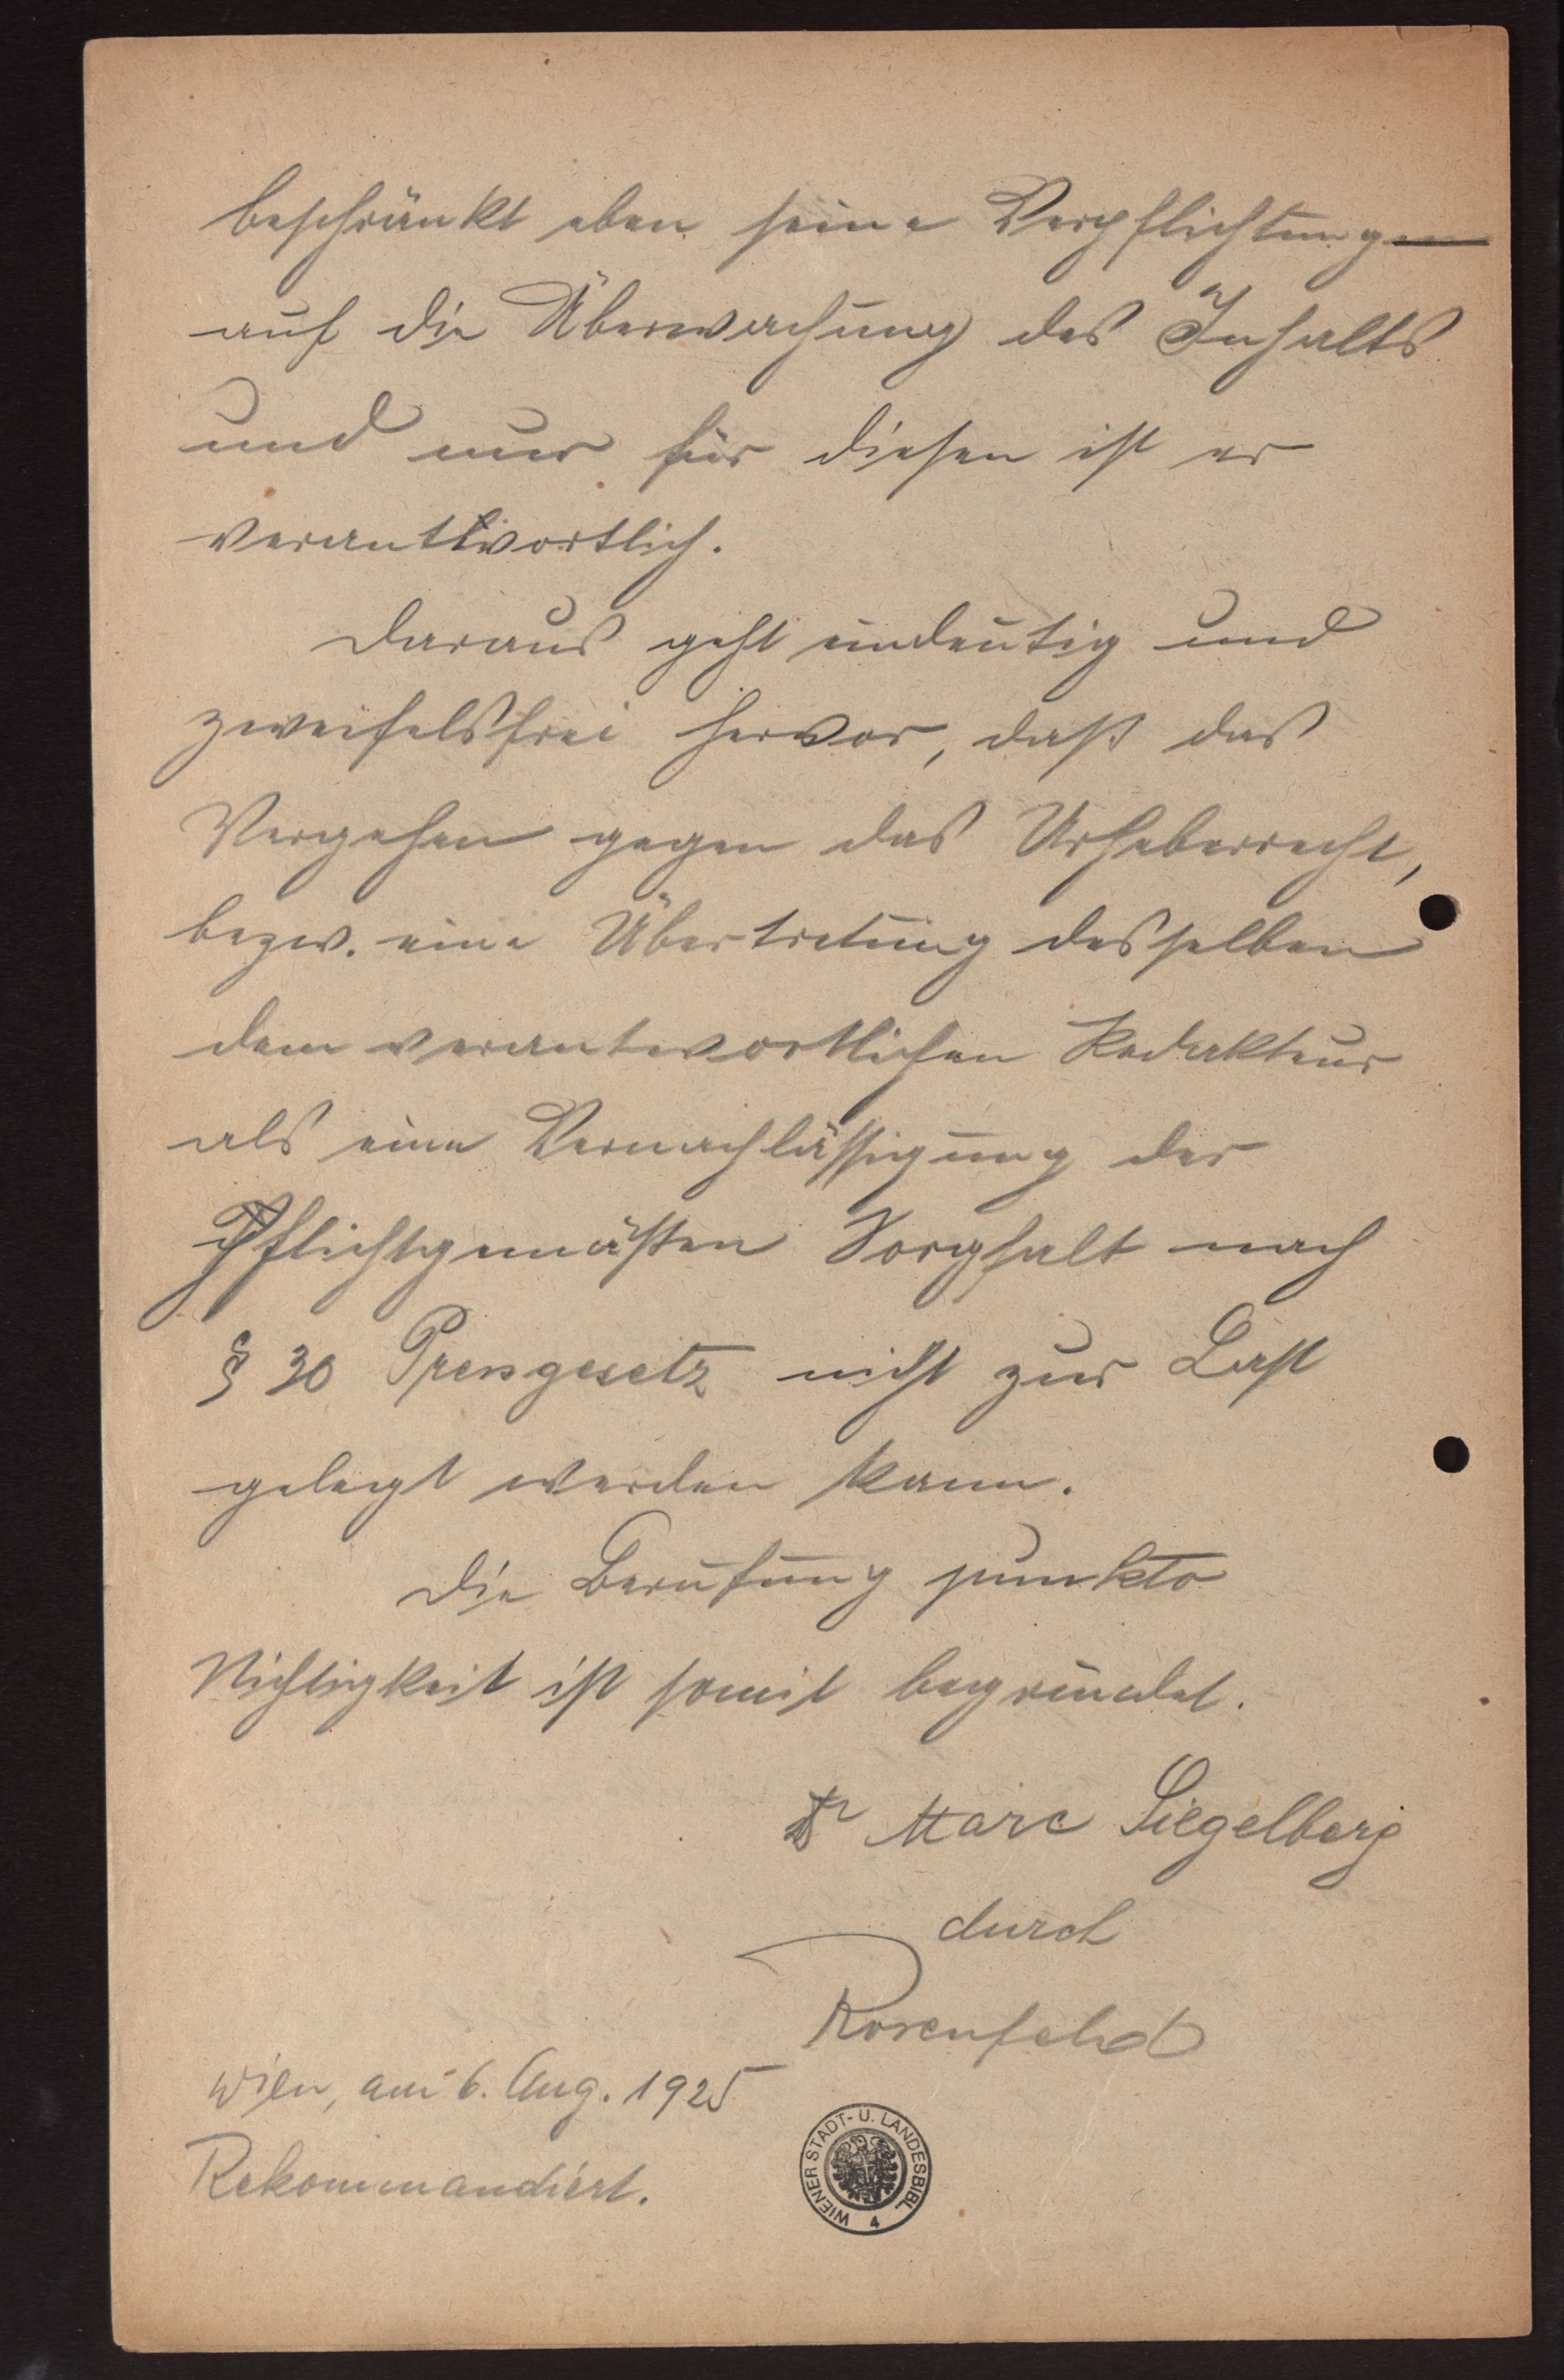 beschränkt eben seine Verpflichtung
auf die Überwachung des Inhalts
und nur für diesen ist er
verantwortlich.
Daraus geht eindeutig und
zweifelsfrei hervor, daß das
Vergehen gegen das Urheberrecht,
bezw. eine Übertretung desselben
dem verantwortlichen Redakteur
als eine Vernachlässigung der
pflichtgemäßen Sorgfalt nach
§ 30 Pressgesetz nicht zur Last
gelegt werden kann.
Die Berufung punkto
Nichtigkeit ist somit begründet.
Dr Marc Siegelberg
durch
Rosenfeld
Wien, am 6. Aug. 1925
Rekommandiert.
WIENER STADT- U. LANDESBIBL.
4